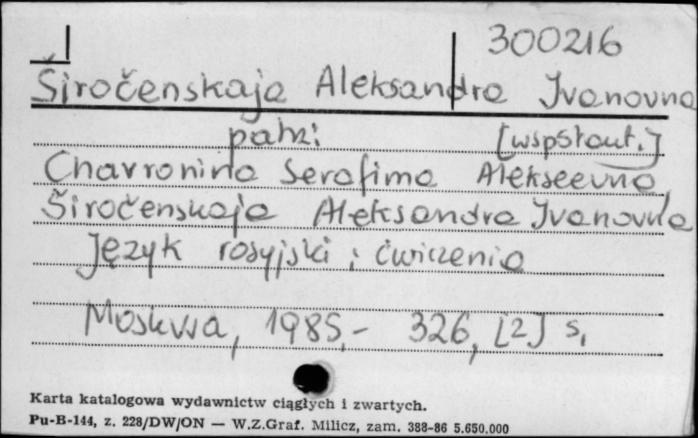 300216
Širočenskaja Aleksandra Ivanovna
patrz [współaut.]
Chavronina Serafima Alekseevna
Širočenskaja Aleksandra Ivanovna
Język rosyjski : ćwiczenia
Moskva, 1985.- 326, [2] s.
Karta katalogowa wydawnictw ciągłych i zwartych.
Pu-B-144, z. 228/DW/ON — W.Z.Graf. Milicz, zam. 388-86 5.650.000